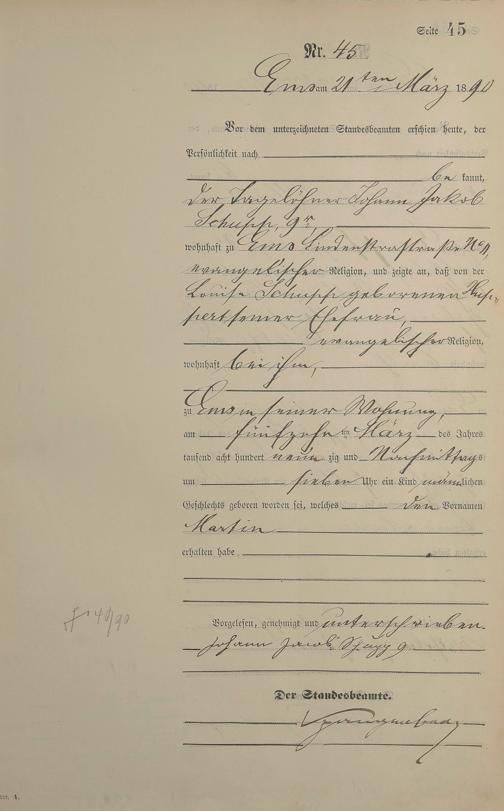 Seite 45
Nr. 45
Ems am 21ten März 1890
Vor dem unterzeichneten Standesbeamten erschien heute, der
Persönlichkeit nach
be kannt,
der Tagelöhner Johann Jakob
Schupp, 9r,
wohnhaft zu Ems Lindenstrastraße
evangelischer Religion, und zeigte an, daß von der
Louise Schupp geborenen
seiner Ehefrau,
evangelischer Religion,
wohnhaft bei ihm,
zu Ems in seiner Wohnung,
am fünfzehnten März des Jahres
tausend acht hundert neun zig und Nachmittags
um sieben Uhr ein Kind männlichen
Geschlechts geboren worden sei, welches den Vornamen
Martin
erhalten habe
Vorgelesen, genehmigt und unterschrieben.
Johann Jacob Schupp 9
Der Standesbeamte.